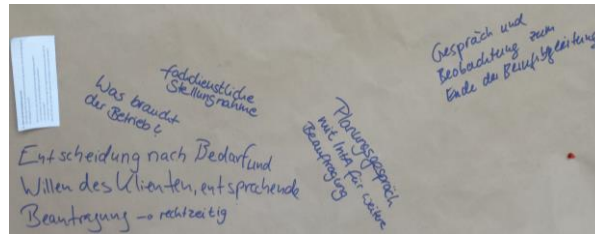 Was braucht
der Betrieb?
fachdienstliche
Stellungnahme
Entscheidung nach Bedarf und
Willen des Klienten, entsprechende
Beantragung → rechtzeitig
Planungsgespräch
mit InbA für weitere
Beauftragung
Gespräch und
Beobachtung zum
Ende der Berufsbegleitung